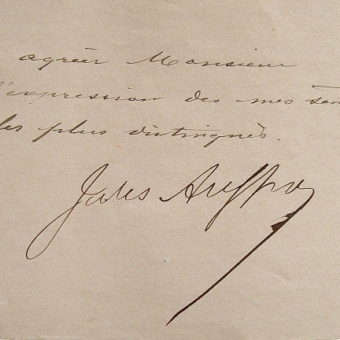 agréer Monsieur
l'expression des mes sen
les plus distingués.
Jules